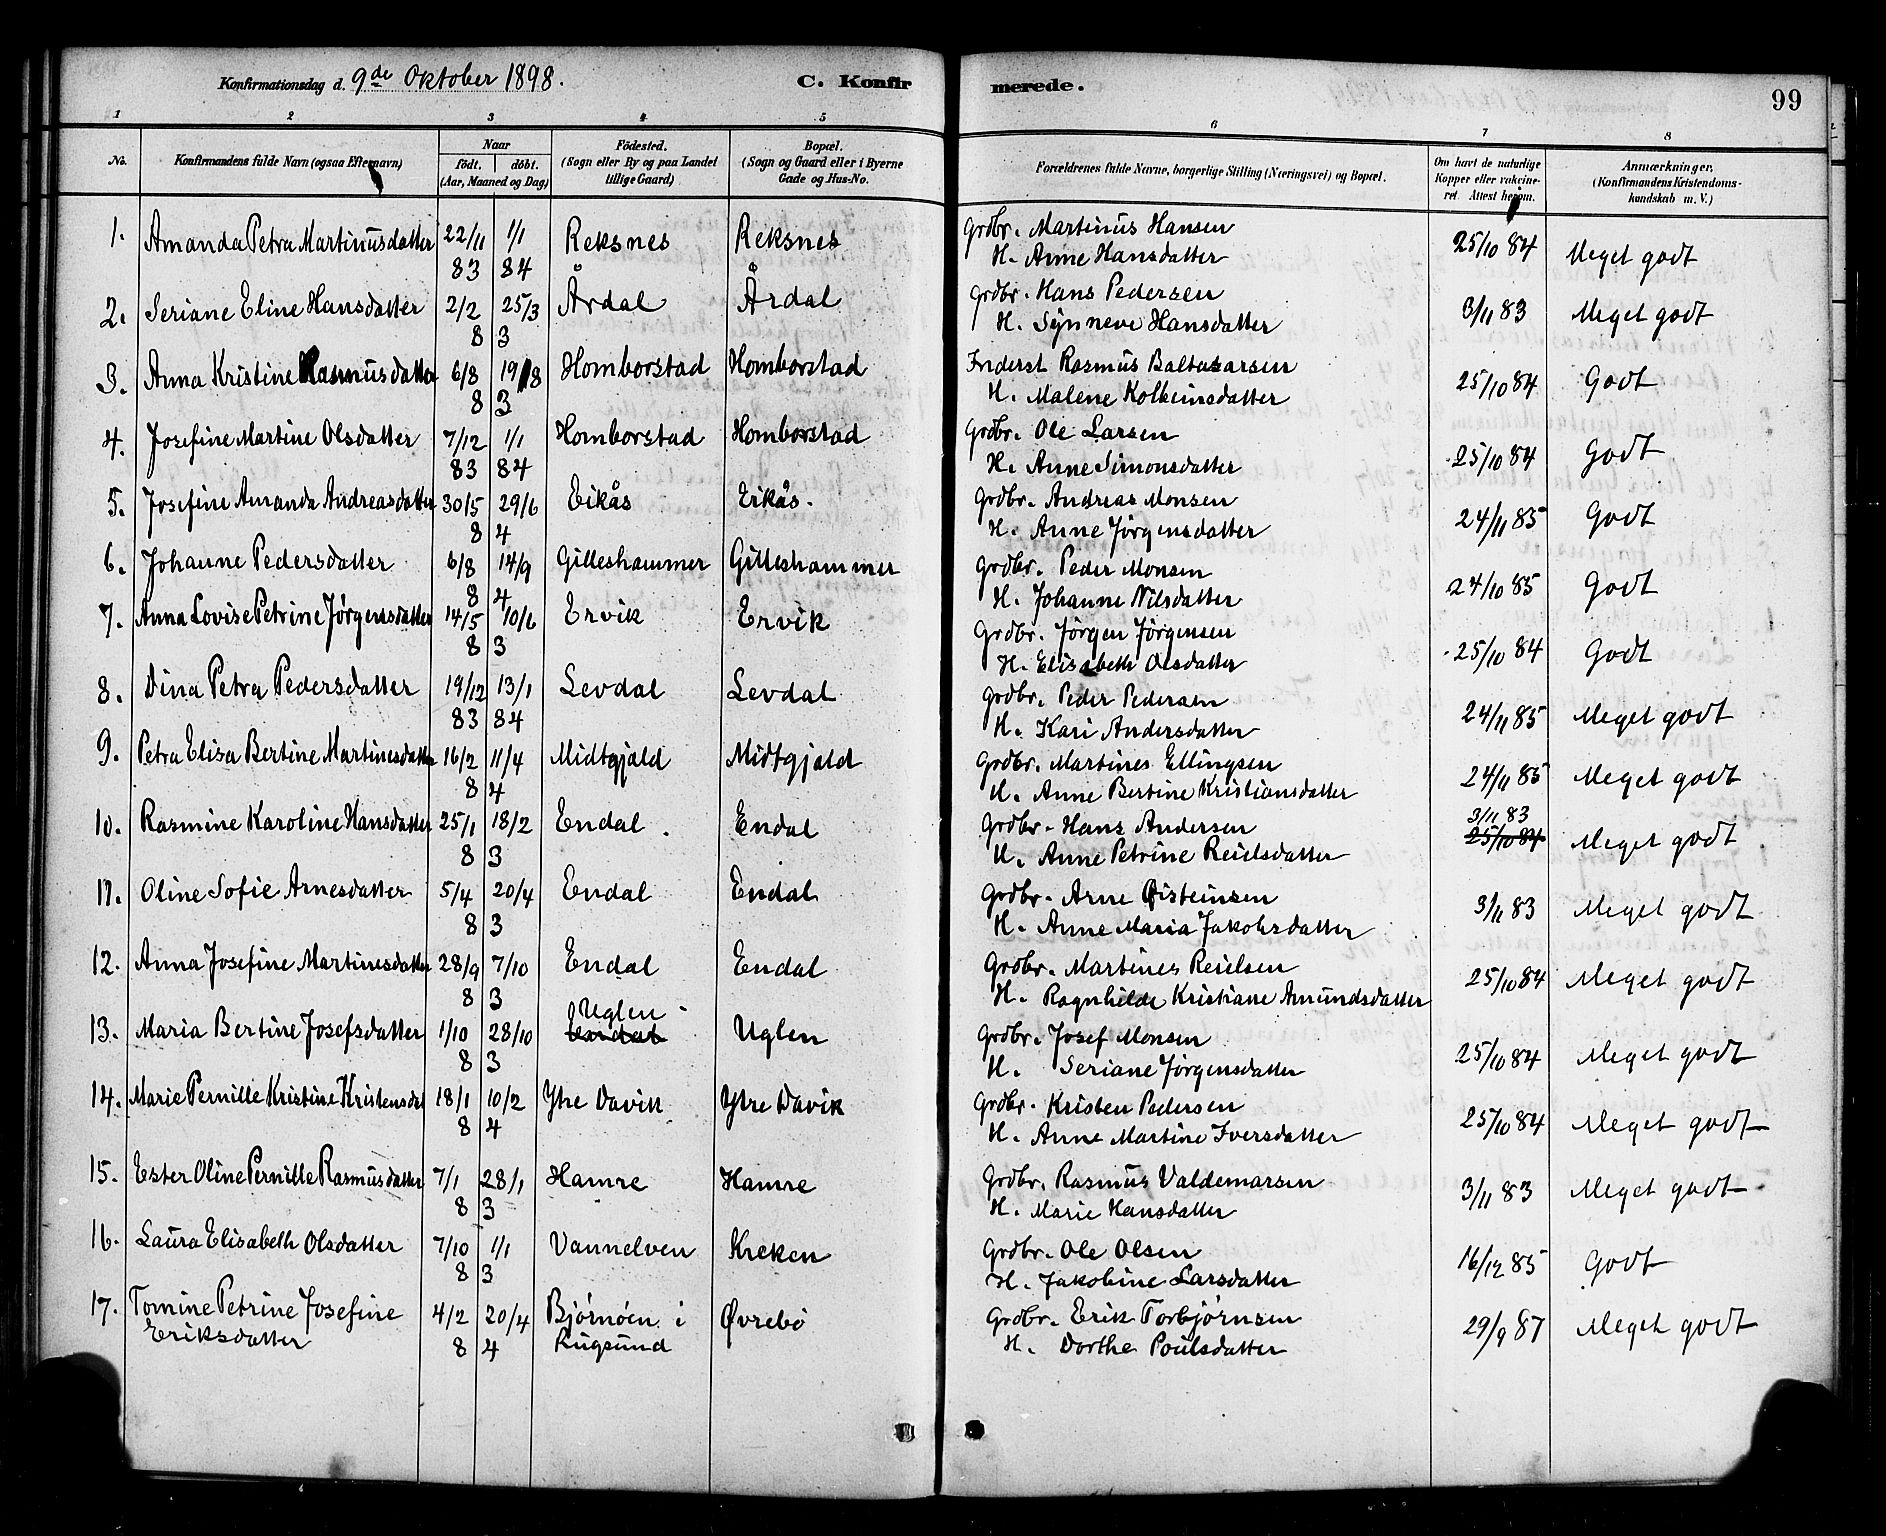 Konfirmationsdag d. 9de Oktober 1898. C. Konfirmerede. 99
1 2 3 4 5 6 7 8
No. Konfirmandens fulde Navn (ogsaa Efternavn) Naar födt. döbt. (Aar, Maaned og Dag) Födested. (Sogn eller By og paa Landet tillige Gaard) Bopæl. (Sogn og Gaard eller i Byerne Gade og Hus-No. Forældrenes fulde Navne, borgerlige Stilling (Næringsvei) og Bopæl. Om havt de naturlige Kopper eller vakcineret. Attest herom. Anmærkninger, (Konfirmandens Kristendomskundskab m. V.)
1. Amanda Petra Martinusdatter 22/11 83 1/1 84 Reksnes Reksnes Grdbr. Martinus Hansen 25/10 84 Meget godt
H. Anne Hansdatter
2. Seriane Eline Hansdatter 2/2 25/3 83 Årdal Årdal Grdbr. Hans Pedersen 3/11 83 Meget godt
H. Synneve Hansdatter
3. Anna Kristine Rasmusdatter 6/8 19/8 83 Homborstad Homborstad Inderst Rasmus Baltasarsen 25/10 84 Godt
H. Malene Kolbeinsdatter
4. Josefine Martine Olsdatter 7/12 83 1/1 84 Homborstad Homborstad Grdbr. Ole Larsen 25/10 84 Godt
H. Anne Simonsdatter
5. Josefine Amanda Andreasdatter 30/5 29/6 84 Eikås Eikås. Grdbr. Andreas Monsen 24/11 85 Godt
H. Anne Jørgensdatter
6. Johanne Pedersdatter 6/8 14/9 84 Gilleshammer Gilleshammer Grdbr. Peder Monsen 24/10 85 Godt
H. Johanne Nilsdatter
7. Anna Lovise Petrine Jørgensdatter 14/5 10/6 83 Ervik Ervik Grdbr. Jørgen Jørgensen 25/10 84 Godt
H. Elisabeth Olsdatter
8. Dina Petra Pedersdatter 19/12 83 13/1 84 Levdal Levdal Grdbr. Peder Pedersen 24/11 85 Meget godt
H. Kari Andersdatter
9. Petra Elisa Bertine Martinesdatter 16/2 11/4 84 Midtgjald Midtgjald Grdbr. Martines Ellingsen 24/11 85 Meget godt
H. Anne Bertine Kristiansdatter
10. Rasmine Karoline Hansdatter 25/1 18/2 83 Endal. Endal Grdbr. Hans Andersen 3/11 83 25/10 84 Meget godt
H. Anne Petrine Reielsdatter
11. Oline Sofie Arnesdatter 5/4 20/4 83 Endal Endal Grdbr. Arne Øisteinsen 3/11 83 Meget godt
H. Anne Maria Jakobsdatter
12. Anna Josefine Martinesdatter 28/9 7/10 83 Endal Endal Grdbr. Martines Reielsen 25/10 84 Meget godt
H. Ragnhilde Kristiane Amundsdatter
13. Maria Bertine Josefsdatter 1/10 28/10 83 Uglen Endal Uglen Grdbr. Josef Monsen 25/10 84 Meget godt
H. Seriane Jørgensdatter
14. Marie Pernille Kristine Kristensdat 18/1 10/2 84 Ytre Davik Ytre Davik Grdbr. Kristen Pedersen 25/10 84 Meget godt
H. Anne Martine Iversdatter
15. Ester Oline Pernille Rasmusdatter 7/1 28/1 83 Hamre Hamre Grdbr. Rasmus Valdemarsen 3/11 83 Meget godt
H. Marie Hansdatter
16. Laura Elisabeth Olsdatter 7/10 1/1 83 Vannelven Kreken Grdbr. Ole Olsen 16/12 85 Godt
H. Jakobine Larsdatter
17. Tomine Petrine Josefine Eriksdatter 4/2 20/4 84 Bjørnøen i Rugsund Øvrebø Grdbr. Erik Torbjørnsen 29/9 87 Meget godt
H. Dorthe Poulsdatter